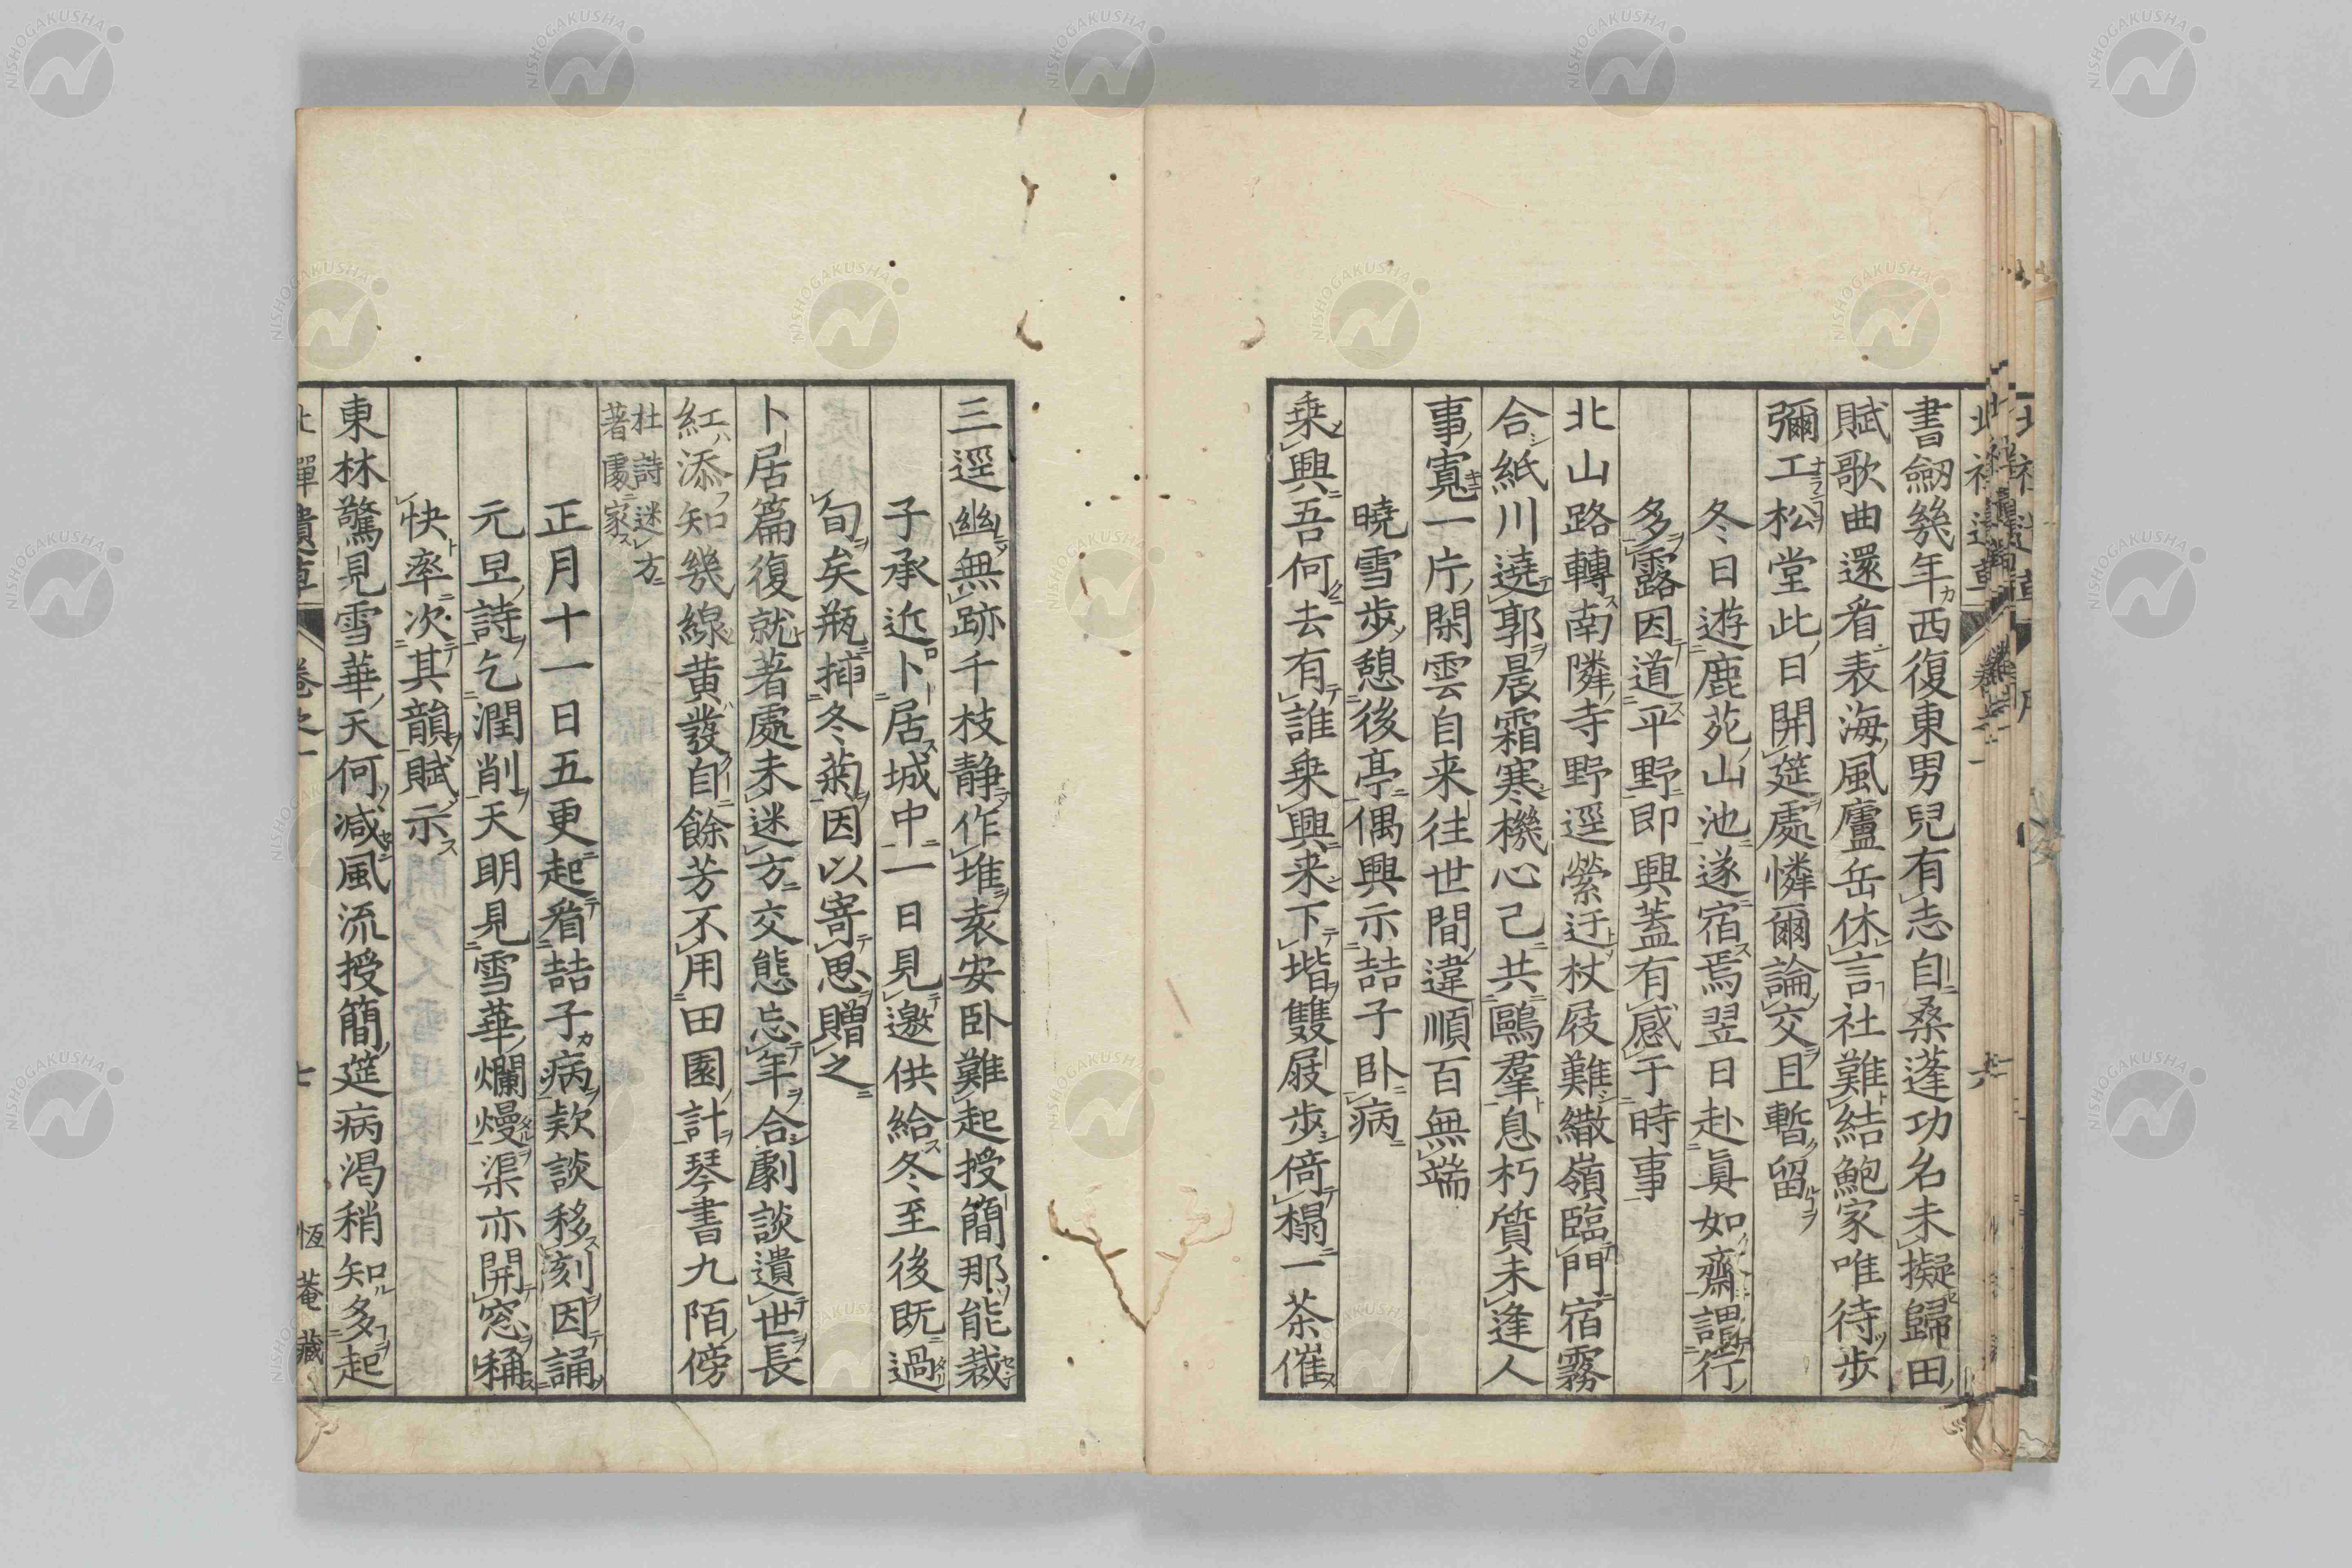 書劔幾年西復東男兒有志自桑蓬功名未擬歸田
賦歌曲還看表海風廬岳休言社難結鮑家唯待歩
彌工松堂此日開筵處憐爾論交且暫留
冬日遊鹿苑山池遂宿焉翌日赴眞如齋謂行
多露因道平野即興蓋有感于時事
北山路轉南隣寺野逕縈迂杖屐難繖嶺臨門宿霧
合紙川遶郭晨霜寒機心已共鷗羣息朽質未逢人
事寬一片閑雲自来往世間違順百無端
曉雪歩憩後亭偶興示喆子卧病
乗興吾何去有誰乗興来下堦雙屐歩倚榻一茶催
三逕幽無跡千枝静作堆袁安卧難起授簡那能裁
子承近卜居城中一日見邀供給冬至後既過
旬矣瓶揷冬菊因以寄思贈之
卜居篇復就著處未迷方交態忘年合劇談遺世長
紅添知幾線黄發自餘芳不用田園計琴書九陌傍
杜詩迷方
著處家
正月十一日五更起看喆子病欵談移刻因誦
元旦詩乞潤削天明見雪華爛熳渠亦開窓稱
快率次其韻賦示
東林驚見雪華天何减風流授簡筵病渇稍知多起
卷之一
七
恆菴藏
NISHOGAKUSHA